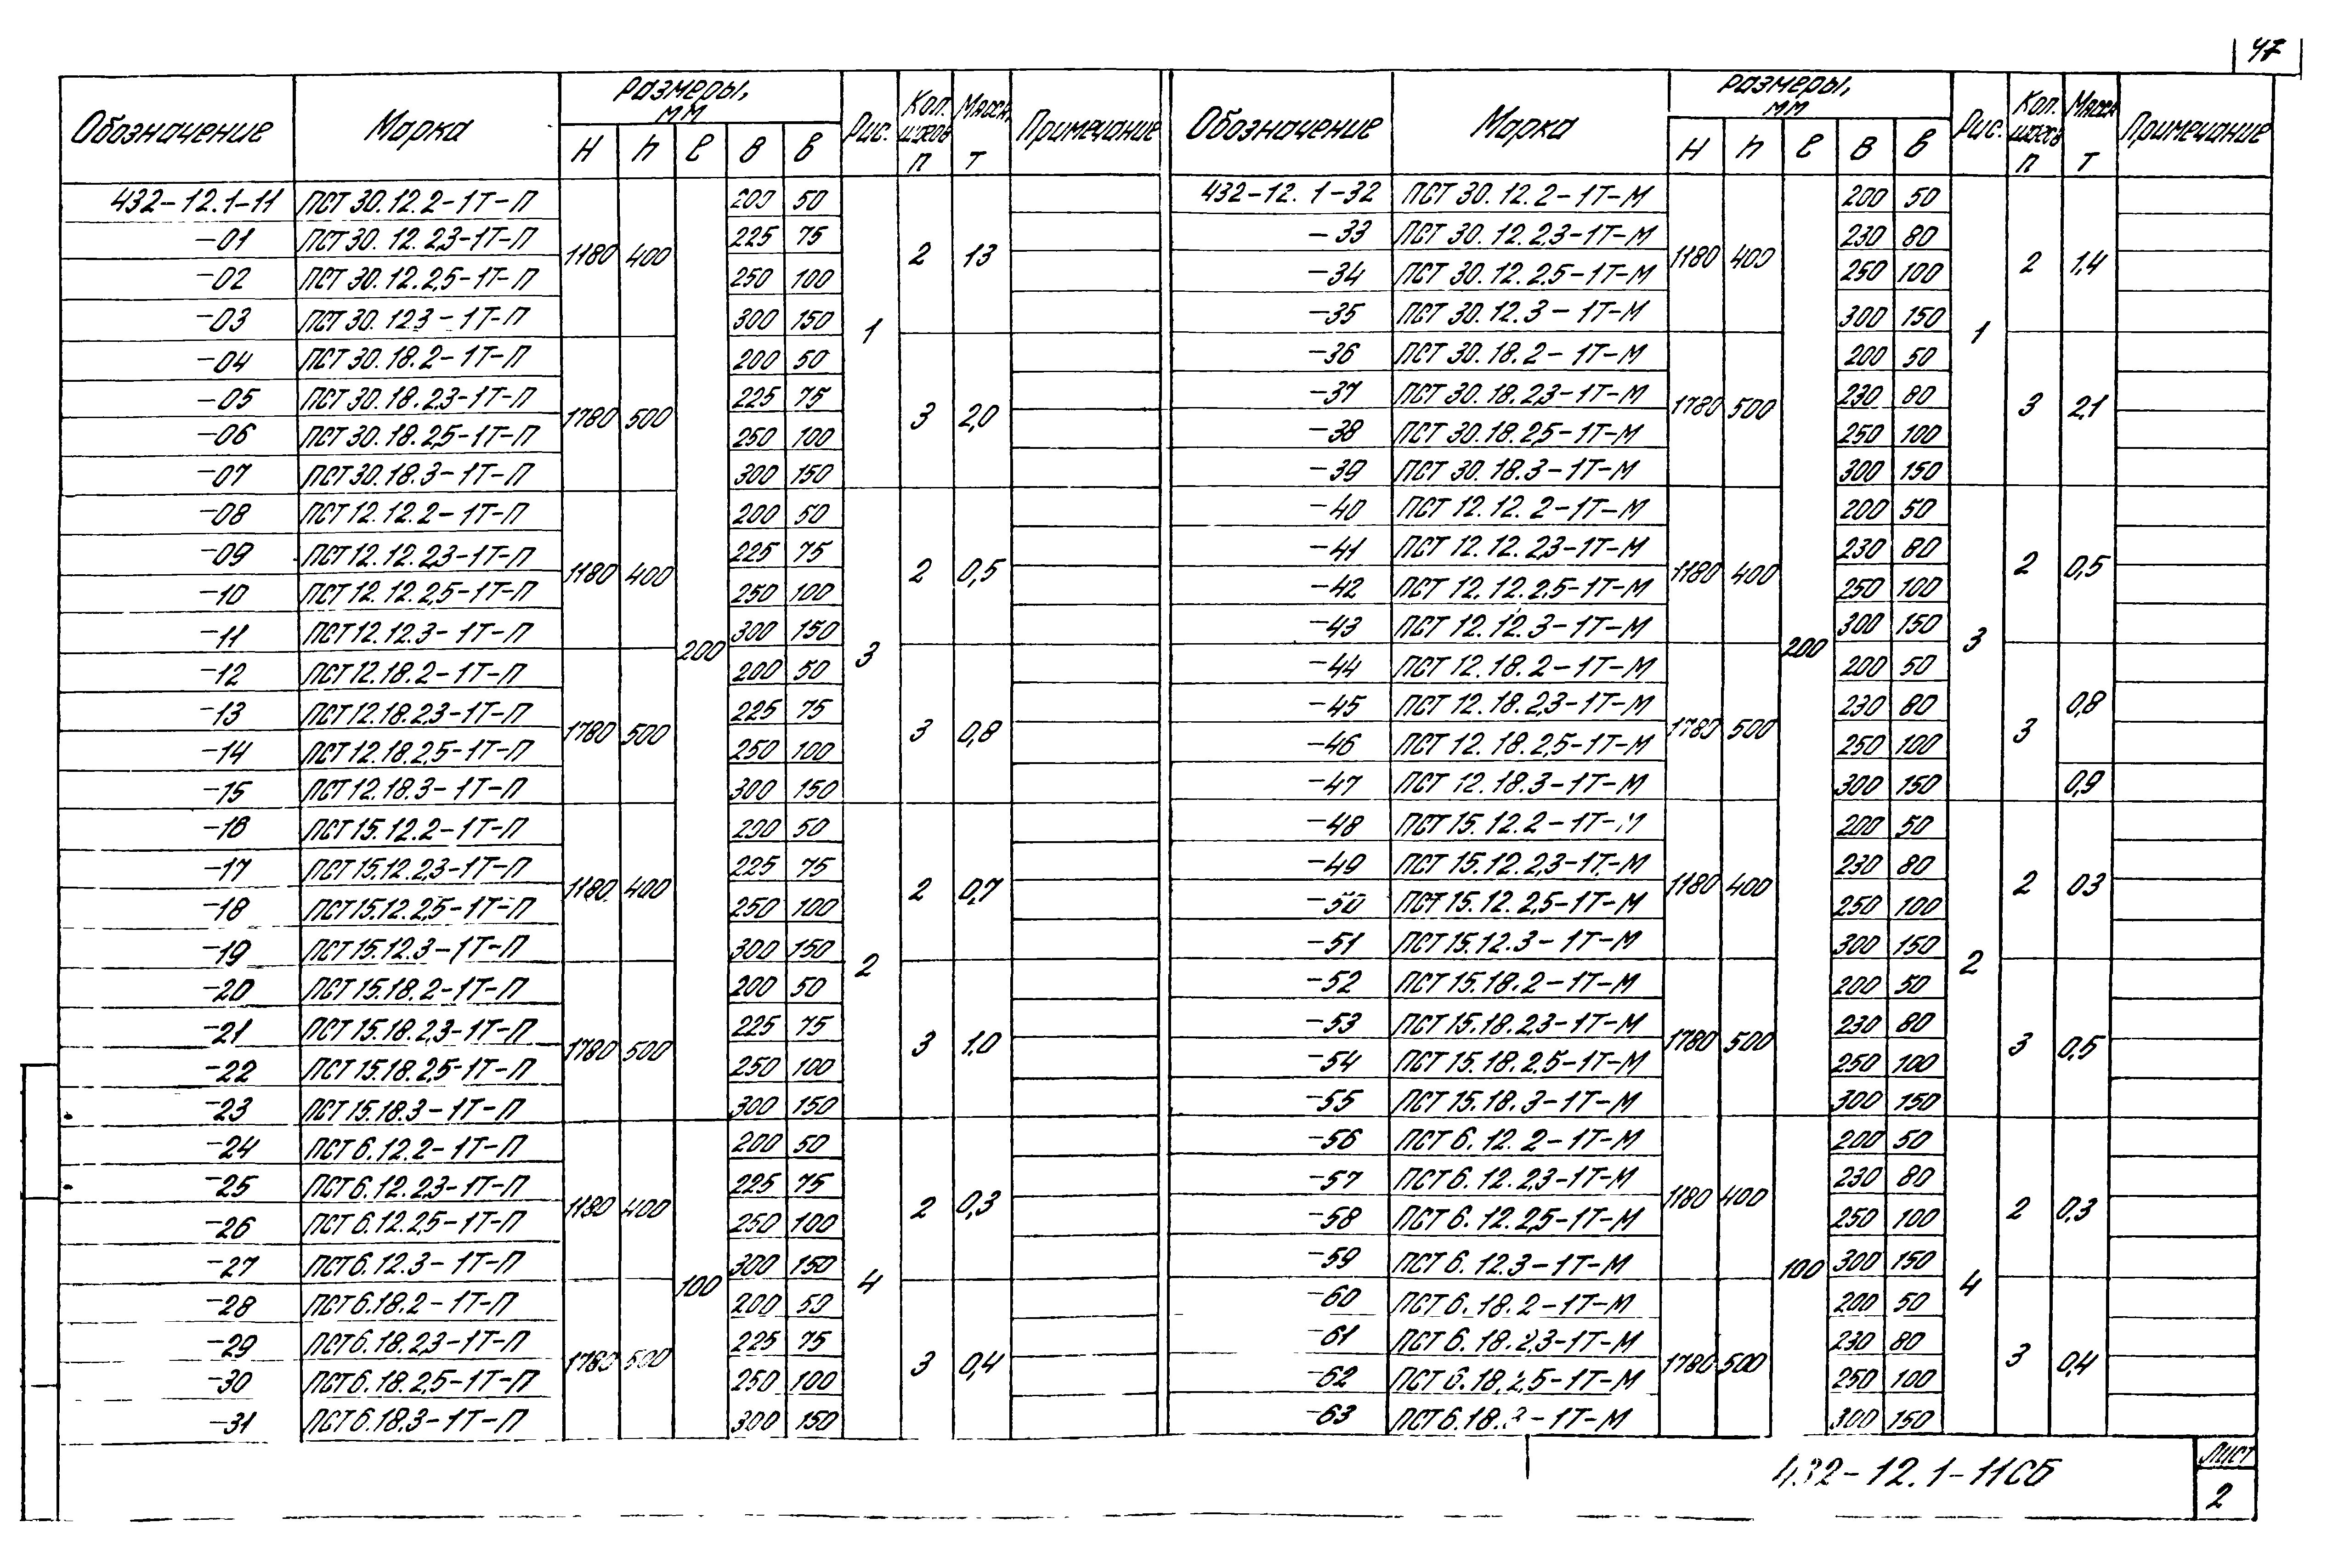 47
Обозначение Марка Размеры, мм H h l B b Рис. Кол. шагов п Масса, т Примечание Обозначение Марка Размеры, мм H h l B b Рис. Кол. шагов п Масса т Примечание
432-12.1-11 ПСТ 30.12.2-1Т-П 1180 400 200 200 50 1 2 13 432-12.1-32 ПСТ 30.12.2-1Т-М 1180 400 200 200 50 1 2 1,4
-01 ПСТ 30.12.2,3-1Т-П 225 75 -33 ПСТ 30.12.2,3-1Т-М 230 80
-02 ПСТ 30.12.2,5-1Т-П 250 100 -34 ПСТ 30.12.2.5-1Т-М 250 100
-03 ПСТ 30.123-1Т-П 300 150 -35 ПСТ 30.12.3-1Т-М 300 150
-04 ПСТ 30.18.2-1Т-П 1780 500 200 50 3 2,0 -36 ПСТ 30.18.2-1Т-М 1780 500 200 50 3 2,1
-05 ПСТ 30.18.2,3-1Т-П 225 75 -37 ПСТ 30.18.2,3-1Т-М 230 80
-06 ПСТ 30.18.2,5-1Т-П 250 100 -38 ПСТ 30.18.2,5-1Т-М 250 100
-07 ПСТ 30.18.3-1Т-П 300 150 -39 ПСТ 30.18.3-1Т-М 300 150
-08 ПСТ 12.12.2-1Т-П 1180 400 200 50 3 2 0,5 -40 ПСТ 12.12.2-1Т-М 1180 400 200 50 3 2 0,5
-09 ПСТ 12.12.2,3-1Т-П 225 75 -41 ПСТ 12.12.2,3-1Т-М 230 80
-10 ПСТ 12.12.2,5-1Т-П 250 100 -42 ПСТ 12.12.2,5-1Т-М 250 100
-11 ПСТ 12.12.3-1Т-П 300 150 -43 ПСТ 12.12.3-1Т-М 300 150
-12 ПСТ 12.18.2-1Т-П 1780 500 200 50 3 0,8 -44 ПСТ 12.18.2-1Т-М 1780 500 200 50 3 0,8
-13 ПСТ 12.18.2,3-1Т-П 225 75 -45 ПСТ 12.18.2,3-1Т-М 230 80
-14 ПСТ 12.18.2,5-1Т-П 250 100 -46 ПСТ 12.18.2,5-1Т-М 250 100
-15 ПСТ 12.18.3-1Т-П 300 150 -47 ПСТ 12.18.3-1Т-М 300 150 0,9
-16 ПСТ 15.12.2-1Т-П 1180 400 200 50 2 2 0,7 -48 ПСТ 15.12.2-1Т-М 1180 400 200 50 2 2 03
-17 ПСТ 15.12.2,3-1Т-П 225 75 -49 ПСТ 15.12.2,3-1Т-М 230 80
-18 ПСТ 15.12.2,5-1Т-П 250 100 -50 ПСТ 15.12.2,5-1Т-М 250 100
-19 ПСТ 15.12.3-1Т-П 300 150 -51 ПСТ 15.12.3-1Т-М 300 150
-20 ПСТ 15.18.2-1Т-П 1780 500 200 50 3 1.0 -52 ПСТ 15.18.2-1Т-М 1780 500 200 50 3 0,5
-21 ПСТ 15.18.2,3-1Т-П 225 75 -53 ПСТ 15.18.2,3-1Т-М 230 80
-22 ПСТ 15.18.2,5-1Т-П 250 100 -54 ПСТ 15.18.2,5-1Т-М 250 100
-23 ПСТ 15.18.3-1Т-П 300 150 -55 ПСТ 15.18.3-1Т-М 300 150
-24 ПСТ 6.12.2-1Т-П 1180 400 100 200 50 4 2 0,3 -56 ПСТ 6.12.2-1Т-М 1180 400 100 200 50 4 2 0,3
-25 ПСТ 6.12.2,3-1Т-П 225 75 -57 ПСТ 6.12.2,3-1Т-М 230 80
-26 ПСТ 6.12.2,5-1Т-П 250 100 -58 ПСТ 6.12.2,5-1Т-М 250 100
-27 ПСТ 6.12.3-1Т-П 300 150 -59 ПСТ 6.12.3-1Т-М 300 150
-28 ПСТ 6.18.2-1Т-П 1780 500 200 50 3 0,4 -60 ПСТ 6.18.2-1Т-М 1780 500 200 50 3 0,4
-29 ПСТ 6.18.2,3-1Т-П 225 75 -61 ПСТ 6.18.2,3-1Т-М 230 80
-30 ПСТ 6.18.2,5-1Т-П 250 100 -62 ПСТ 6.18.2,5-1Т-М 250 100
-31 ПСТ 6.18.3-1Т-П 300 150 -63 ПСТ 6.18.3-1Т-М 300 150
432-12.1-11СБ
Лист
2